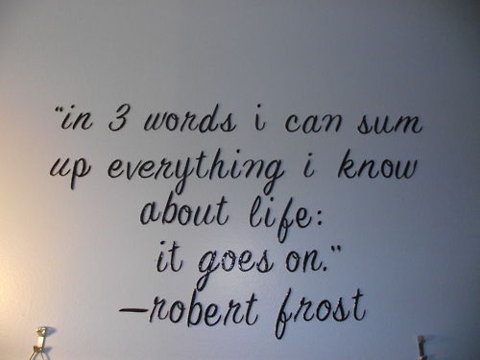 "in 3 words i can sum
up everything i know
about life:
it goes on."
—robert frost